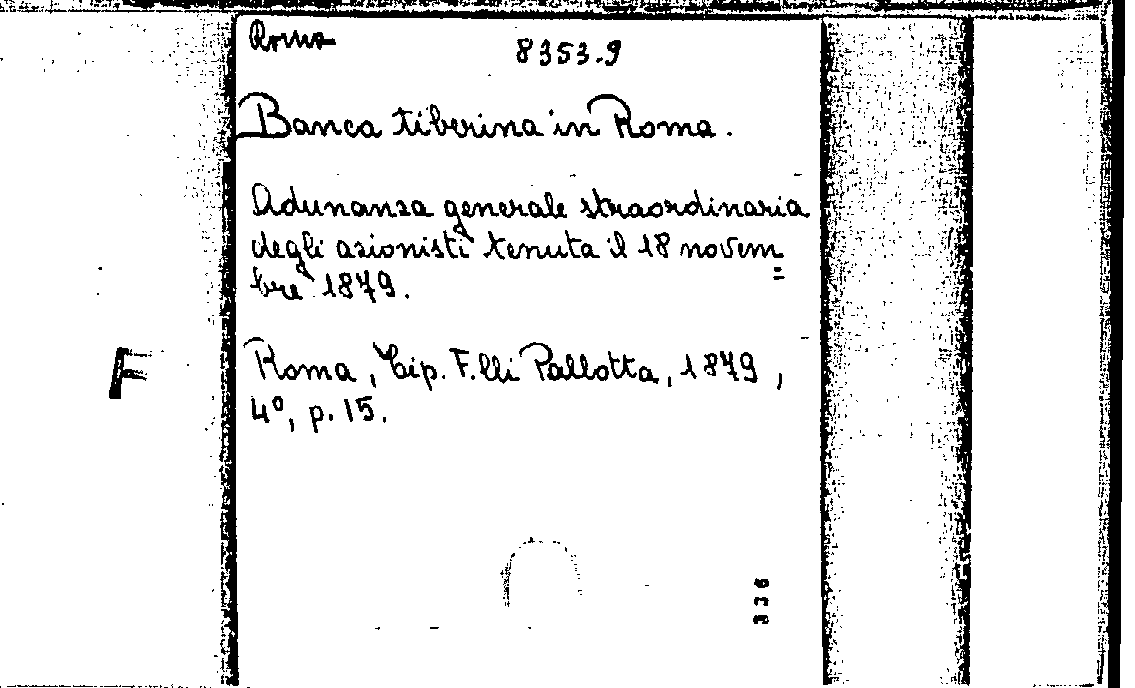 Roma
8353.9
Banca tiberina in Roma.
Adunanza generale straordinaria
degli azionisti tenuta il 18 novem=
bre 1879.
Roma, Tip. F.lli Pallotta, 1879,
4º, p. 15.
F
336